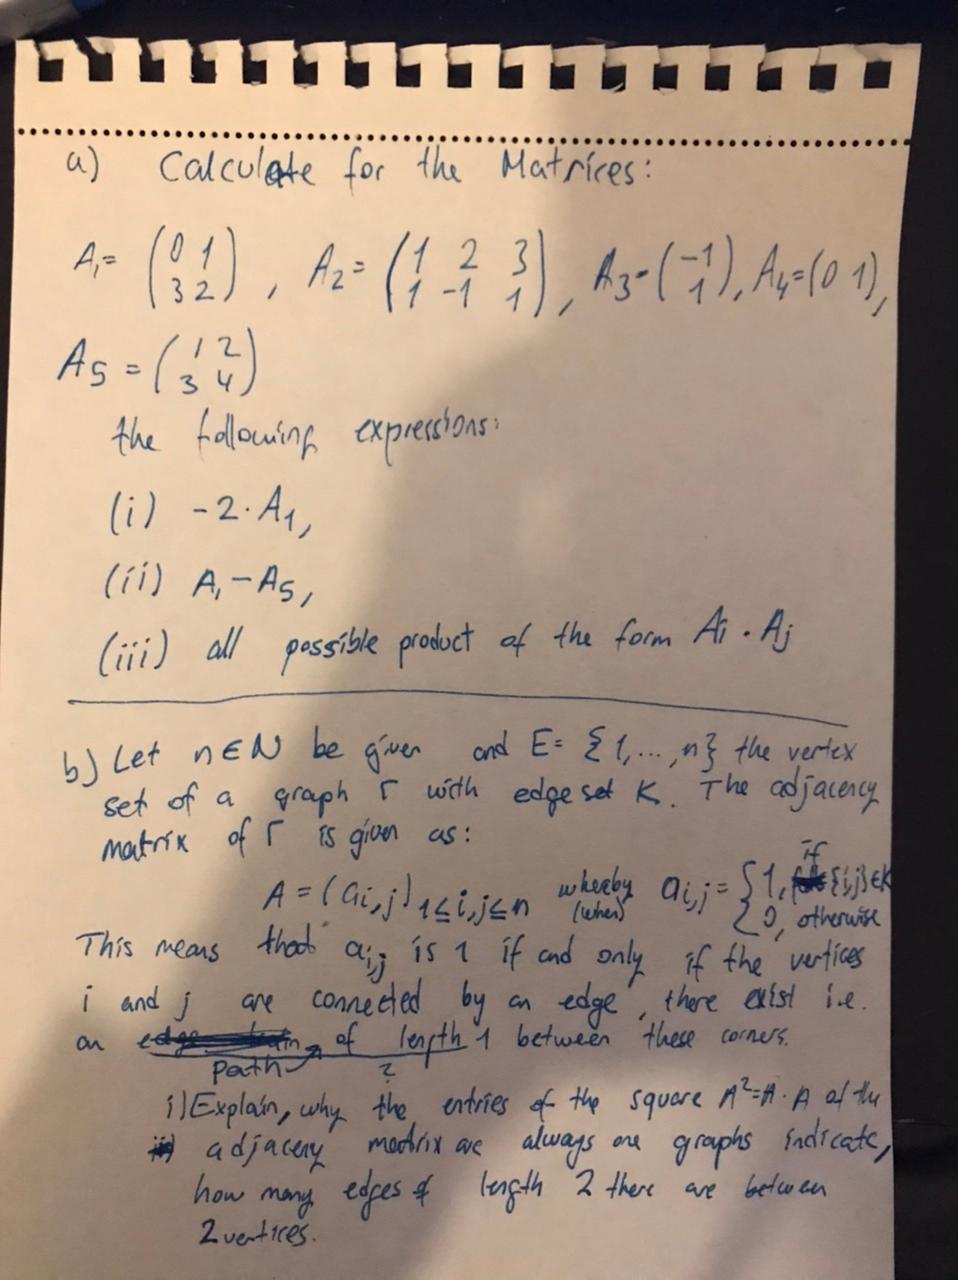 a) Calculate for the Matrices:
A₁= (0 1
3 2), A₂= (1 2 3
1 -1 1), A₃=(-1
1), A₄=(0 1),
A5 = (1 2
3 4)
the following expressions:
(i) -2·A₁,
(ii) A₁-A5,
(iii) all possible product of the form Ai · Aj
b) Let n∈N be given and E= {1,...,n} the vertex
set of a graph Γ with edge set K. The adjacency
matrix of Γ is given as:
A = (ai,j)1≤i,j≤n whereby (when) ai,j= {1, if {i,j}∈K
0, otherwise
This means that ai,j is 1 if and only if the vertices
i and j are connected by an edge, there exist i.e.
an path of length 1 between these corners.
?
i) Explain, why the entries of the square A²=A·A of the
adjaceny matrix are always one graphs indicate,
how many edges of length 2 there are between
2 vertices.